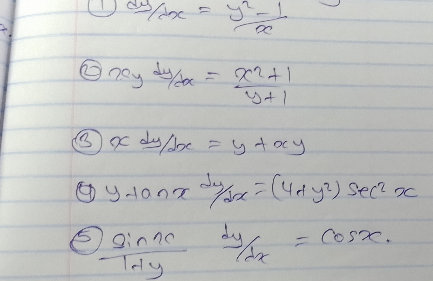 ① dy/dx = y²-1/x
② xy dy/dx = x²+1/y+1
③ x dy/dx = y + xy
④ y tanx dy/dx = (4+y²) sec² x
⑤ sinx/1+y dy/dx = cosx.